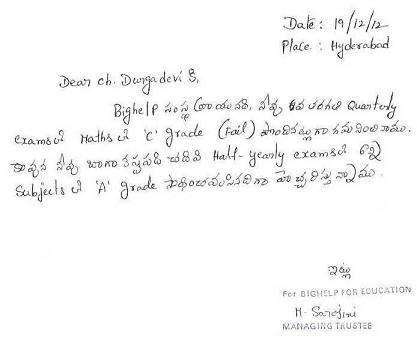 Date: 19/12/12
Place : Hyderabad
Dear ch. Durgadevi S,
Bighelp సంస్థ వ్రాయునది, నీవు 6వ తరగతి Quarterly
exams లో Maths లో 'C' grade (Fail) పొందినట్లుగా గమనించినాము.
కావున నీవు బాగా కష్టపడి చదివి Half-yearly exams లో అన్ని
Subjects లో 'A' grade సాధించవలసినదిగా హెచ్చరిస్తున్నాము.
ఇట్లు
For BIGHELP FOR EDUCATION
M. Sarojini
MANAGING TRUSTEE